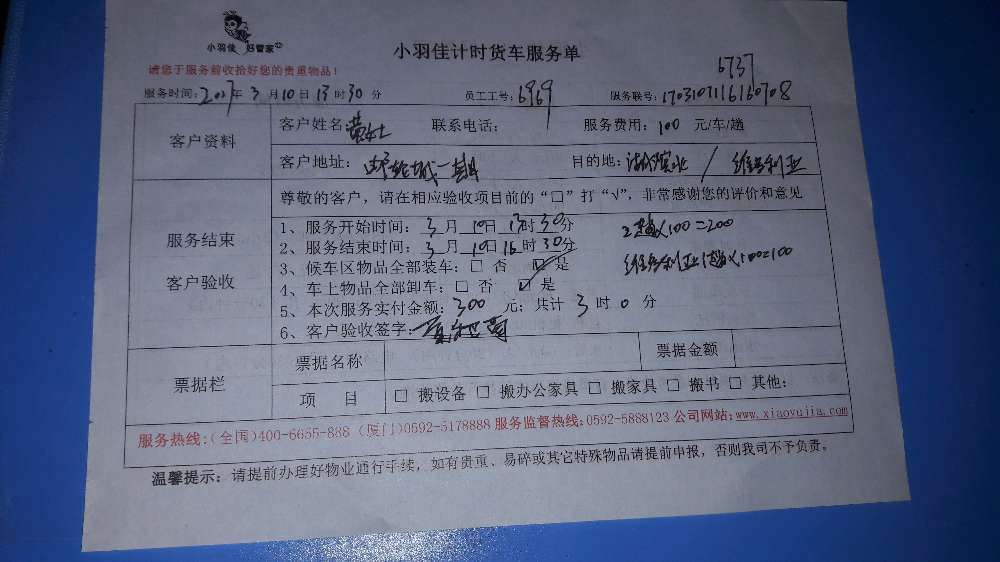 小羽佳 好管家
小羽佳计时货车服务单
请您于服务前收拾好您的贵重物品!
6737
服务时间:2017年3月10日13时30分 员工工号:6969 服务联号:1703107116160708
客户资料
客户姓名 联系电话: 服务费用:100 元/车/趟
客户地址: 城一期 目的地: / 维多利亚
服务结束
客户验收
尊敬的客户,请在相应验收项目前的“□”打“√”,非常感谢您的评价和意见
1、服务开始时间:3月10日13时30分 2趟×100=200
2、服务结束时间:3月10日16时30分
3、候车区物品全部装车:□ 否 ☑ 是 维多利亚1趟×100=100
4、车上物品全部卸车:□ 否 ☑ 是
5、本次服务实付金额:300 元;共计 3 时 0 分
6、客户验收签字:
票据栏
票据名称 票据金额
项 目 □ 搬设备 □ 搬办公家具 □ 搬家具 □ 搬书 □ 其他:
服务热线:(全国)400-6655-888 (厦门)0592-5178888 服务监督热线:0592-5888123 公司网站:www.xiaoyujia.com
温馨提示:请提前办理好物业通行手续,如有贵重、易碎或其它特殊物品请提前申报,否则我司不予负责。